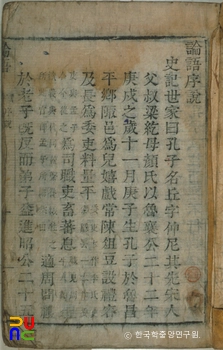 論語序說
史記世家曰孔子名丘字仲尼其先宋人
父叔梁紇母顏氏以魯襄公二十二年
庚戌之歲十一月庚子生孔子於魯昌
平鄉陬邑爲兒嬉戲常陳俎豆設禮容
及長爲委吏料量平
爲司職吏畜蕃息
適周問禮
於老子旣反而弟子益進昭公二十
論語
한국학중앙연구원